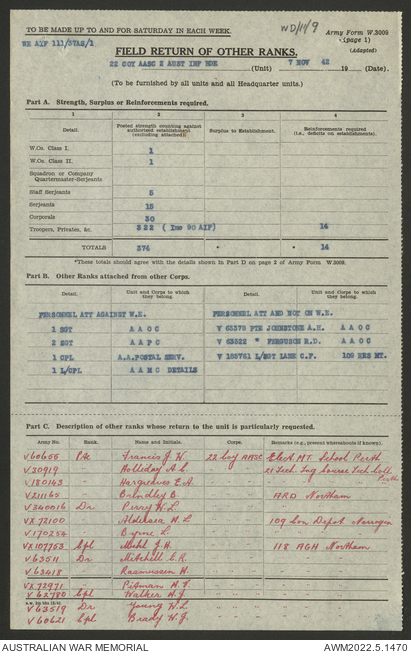 TO BE MADE UP TO AND FOR SATURDAY IN EACH WEEK.
WD/11/9
Army Form W.3009
(page 1)
(Adapted)
WE AIF 111/37AS/1
FIELD RETURN OF OTHER RANKS.
22 COY AASC 2 AUST INF BDE (Unit) 7 NOV 42 19 (Date).
(To be furnished by all units and all Headquarter units.)
Part A. Strength, Surplus or Reinforcements required.
1 2 3 4
Detail. Posted strength counting against authorized establishment (excluding attached). Surplus to Establishment. Reinforcements required (i.e., deficits on establishments).
W.Os. Class I. 1
W.Os. Class II. 1
Squadron or Company Quartermaster-Serjeants
Staff Serjeants 5
Serjeants 15
Corporals 30
Troopers, Privates, &c. 322 (Inc 90 AIF) 14
TOTALS 374 * * 14
*These totals should agree with the details shown in Part D on page 2 of Army Form W.3009.
Part B. Other Ranks attached from other Corps.
Detail. Unit and Corps to which they belong. Detail. Unit and Corps to which they belong.
PERSONNEL ATT AGAINST W.E. PERSONNEL ATT AND NOT ON W.E.
1 SGT A A O C V 63378 PTE JOHNSTONE A.H. A A O C
2 SGT A A P C V 63522 " FERGUSON R.D. A A O C
1 CPL A.A.POSTAL SERV. V 155761 L/SGT LANE C.F. 109 RES MT.
1 L/CPL A A M C DETAILS
Part C. Description of other ranks whose return to the unit is particularly requested.
Army No. Rank. Name and Initials. Corps. Remarks (e.g., present whereabouts if known).
V60655 Pte Francis J. W. 22 Coy AASC Elect. MT. School Perth
V30919 Holliday A. C. Tech. Trg Course Tech Coll Perth
V180143 Hargreaves E. A.
V211165 Brindley B. ARD Northam
V340016 Dr Perry W. L.
VX72100 H. L. 109 Con Depot Narrogin
V170254 Byrne L.
VX107753 Cpl J. H. 118 AGH Northam
V63511 Dr Mitchell C. R.
V63418 Rasmussen H.
VX72971 Pitman H. J.
V63780 Cpl Walker H. J.
V63519 Dr Young W. L.
V60621 Cpl Brady W. J.
AUSTRALIAN WAR MEMORIAL
AWM2022.5.1470